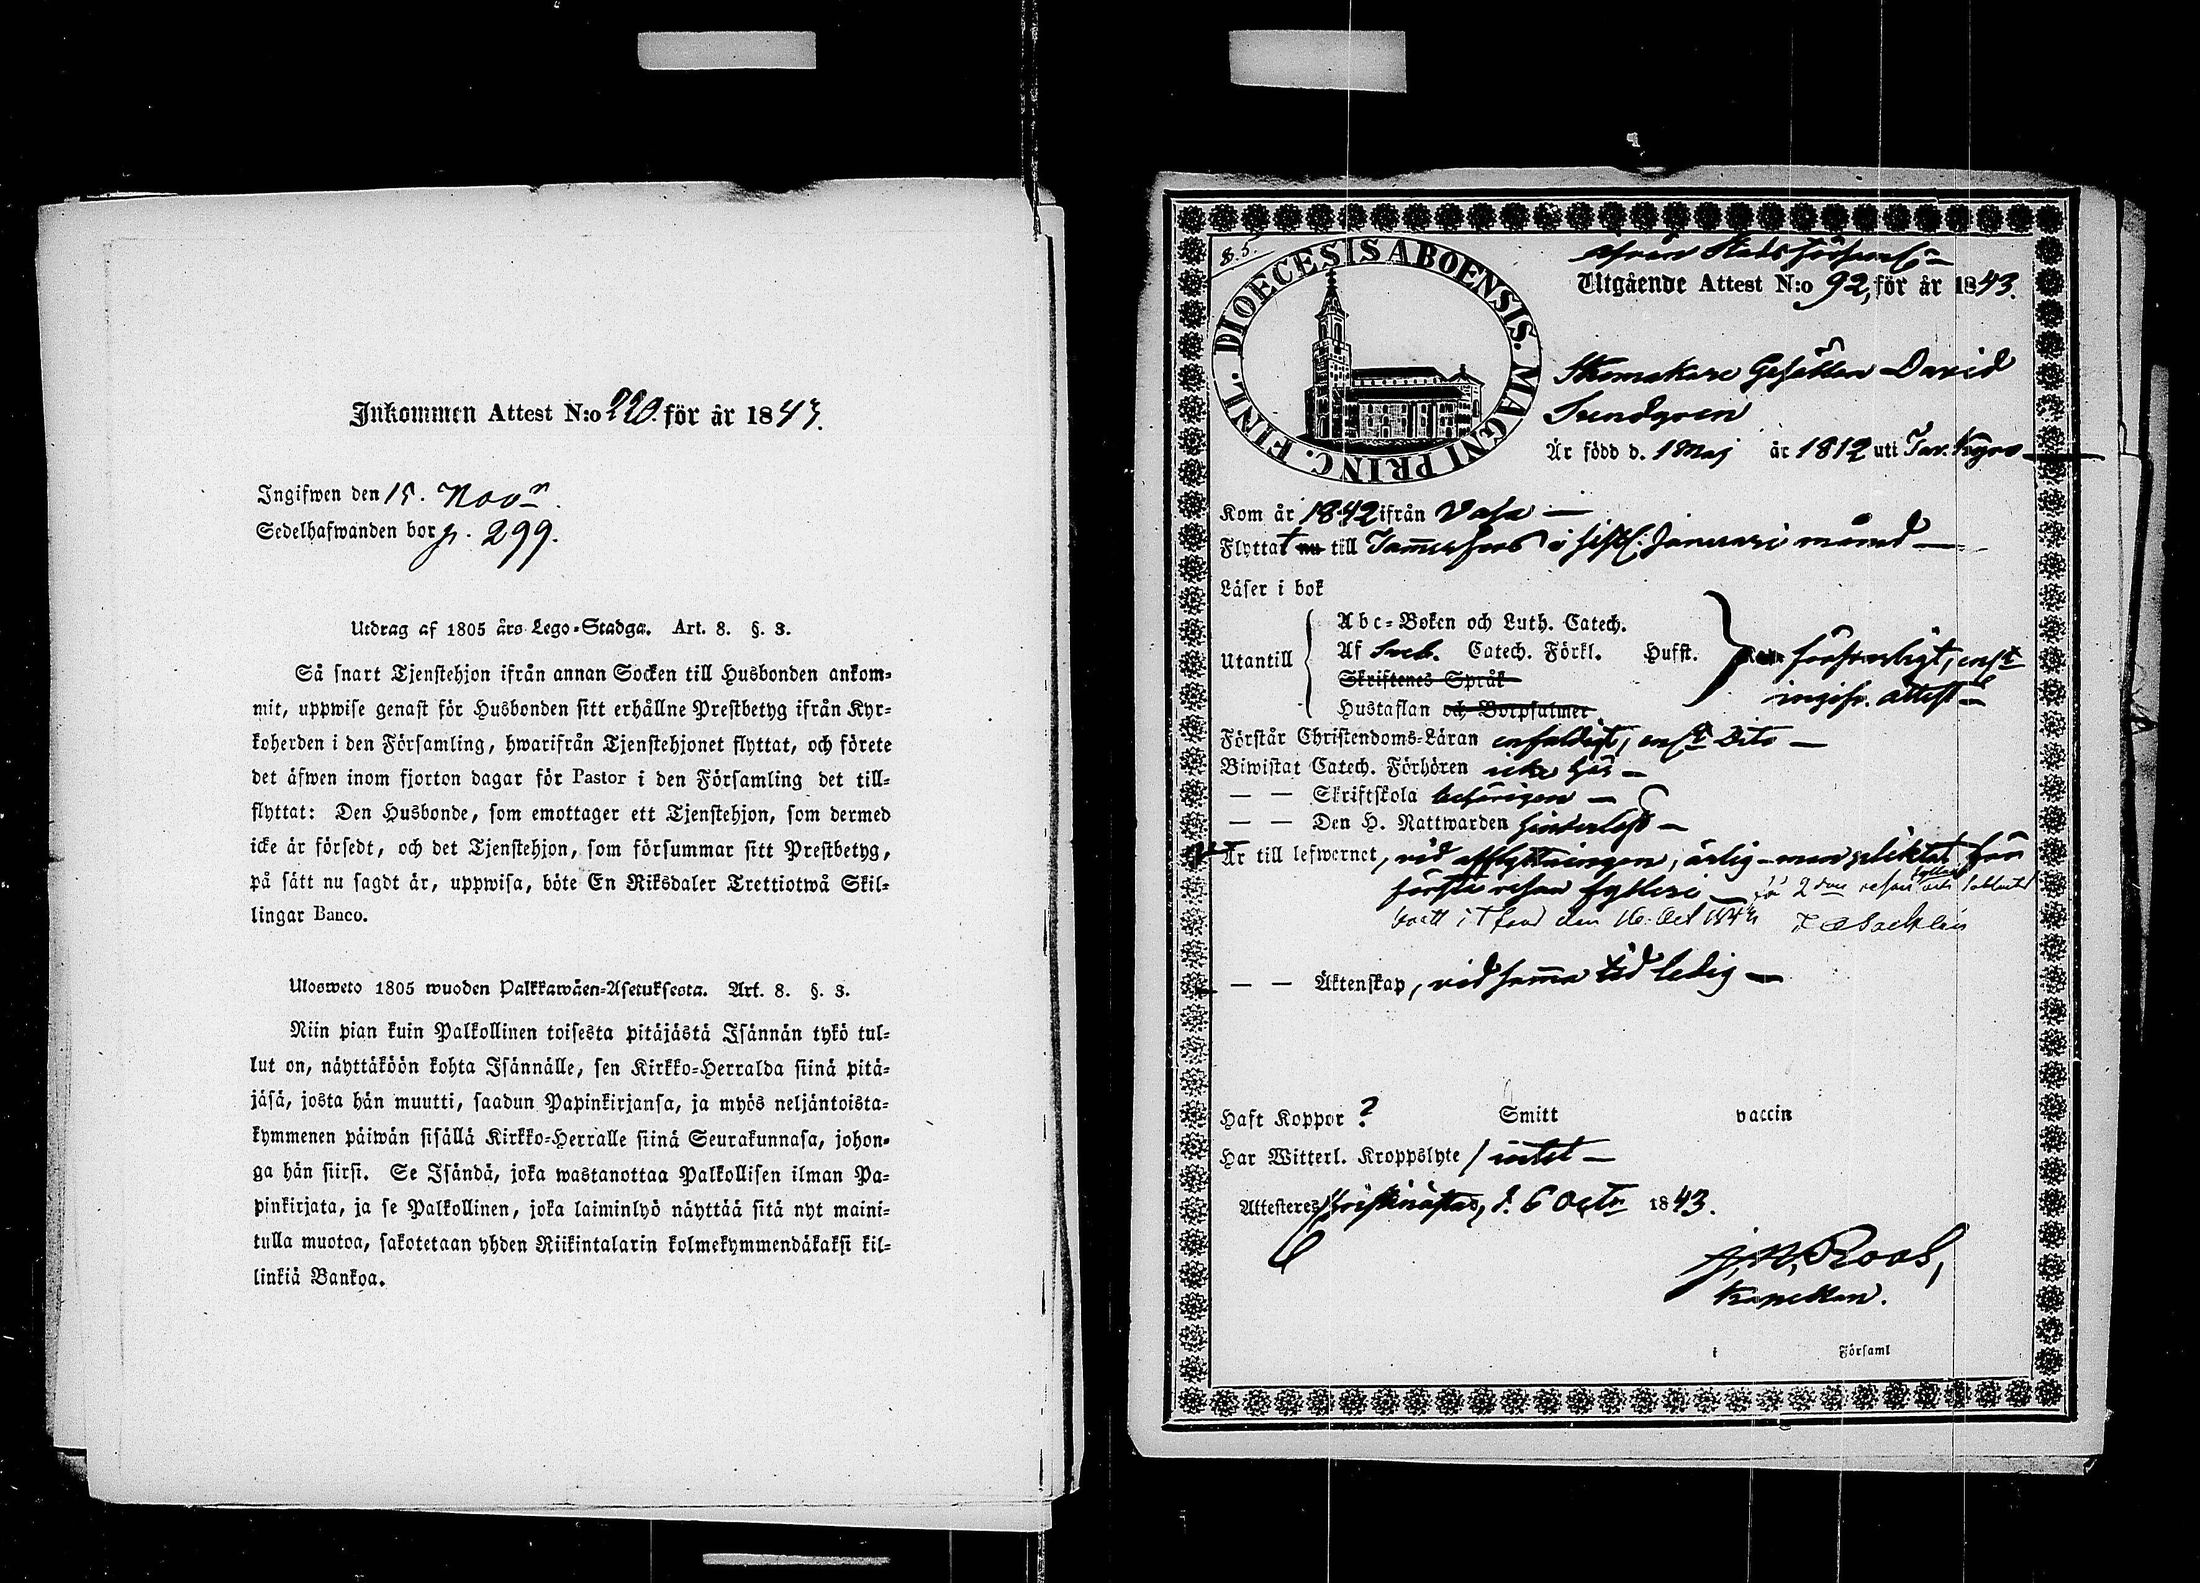 Inkommen Attest N:o 220. för år 1843.
Ingifwen den 15. Novr.
Sedelhafwanden bor p. 299.
Utdrag af 1805 års Lego-Stadga. Art. 8. §. 3.
Så snart Tjenstehjon ifrån annan Socken till Husbonden ankom-
mit, uppwise genast för Husbonden sitt erhållne Prestbetyg ifrån Kyr-
koherden i den Församling, hwarifrån Tjenstehjonet flyttat, och förete
det äfwen inom fjorton dagar för Pastor i den Församling det till-
flyttat: Den Husbonde, som emottager ett Tjenstehjon, som dermed
icke är försedt, och det Tjenstehjon, som försummar sitt Prestbetyg,
på sätt nu sagdt är, uppwisa, böte En Riksdaler Trettiotwå Skil-
lingar Banco.
Ulosweto 1805 wuoden Palkkawäen-Asetuksesta. Art. 8. §. 3.
Niin pian kuin Palkollinen toisesta pitäjästä Isännän tykö tul-
lut on, näyttäköön kohta Isännälle, sen Kirkko-Herralda siinä pitä-
jäsä, josta hän muutti, saadun Papinkirjansa, ja myös neljäntoista-
kymmenen päiwän sisällä Kirkko-Herralle siinä Seurakunnasa, johon-
ga hän siirsi. Se Isändä, joka wastanottaa Palkollisen ilman Pa-
pinkirjata, ja se Palkollinen, joka laiminlyö näyttää sitä nyt maini-
tulla muotoa, sakotetaan yhden Riikintalarin kolmekymmendäkaksi kil-
linkiä Bankoa.
DIOECESIS ABOENSIS. MAGNI PRINC. FINL.
Utgående Attest N:o 92, för år 1843.
Skomakare Gesällen David
Sundgren
Är född d. 1 Maj år 1812 uti Tav. Kyro
Kom år 1842 ifrån Vasa
Flyttat nu till Tammerfors i sistl. Januari månad
Läser i bok
Utantill
Abc-Boken och Luth. Catech.
Af Sveb. Catech. Förkl. Husst.
Skriftenes Språk
Hustaflan och Botpsalmer
försvarligt, enl.
ingifv. attest
Förstår Christendoms-Läran enfaldigt, enl. Dito
Biwistat Catech. Förhören icke här
— — Skriftskola behörigen
— — Den H. Nattwarden
Är till lefwernet, vid afflyttningen, ärlig - men pliktat för
första resan fylleri - för 2dra resan
den 16. Oct 1843
— — Äktenskap, vid samma tid ledig
Haft Koppor ? Smitt vaccin
Har Witterl. Kroppslyte / intet
Attesteres, d. 6 Octr 1843.
J. W. Roos,
Kapellan.
i Församl